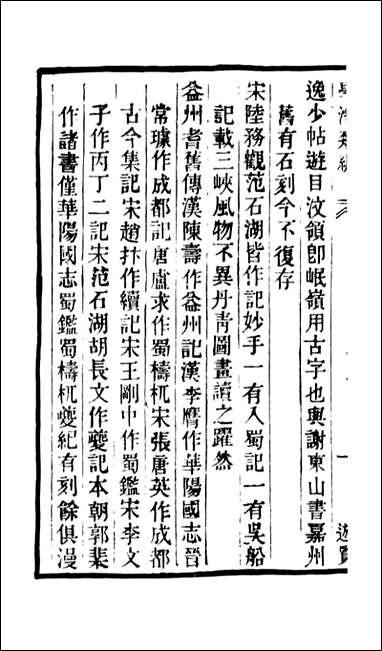 學海類編
逸少帖遊目汶領卽岷嶺用古字也與謝東山書嘉州
舊有石刻今不復存
宋陸務觀范石湖皆作記妙手一有入蜀記一有吳船
記載三峽風物不異丹靑圖畫讀之躍然
益州耆舊傳漢陳壽作益州記漢李膺作華陽國志晉
常璩作成都記唐盧求作蜀檮杌宋張唐英作成都
古今集記宋趙抃作續記宋王剛中作蜀鑑宋李文
子作丙丁二記宋范石湖胡長文作夔記本朝郭棐
作諸書僅華陽國志蜀鑑蜀檮杌夔紀有刻餘俱漫